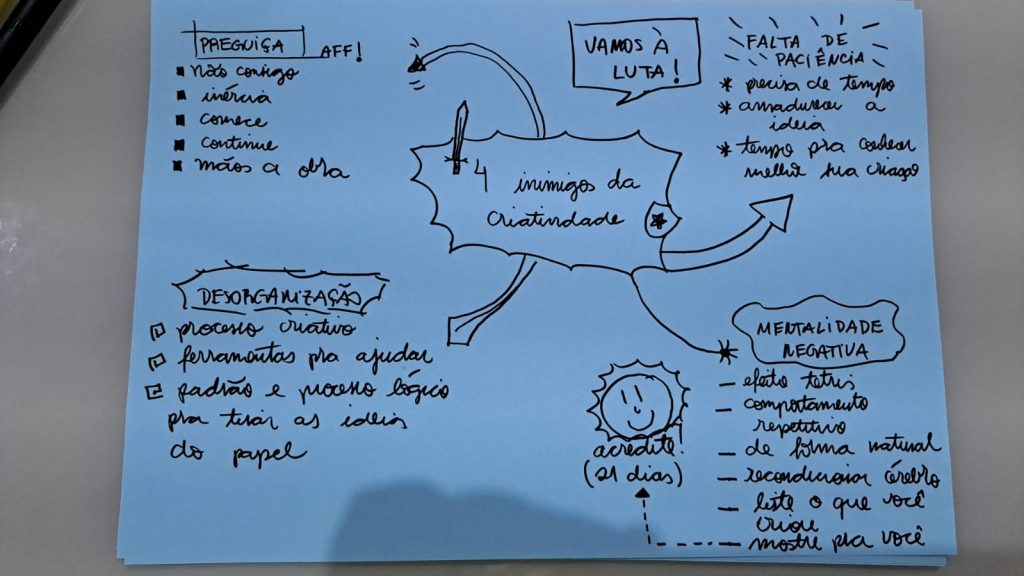 PREGUIÇA AFF!
não consigo
inércia
comece
continue
mãos a obra
VAMOS À
LUTA!
FALTA DE
PACIÊNCIA
precisa de tempo
amadurecer a
ideia
tempo pra conhecer
melhor sua criação
4 inimigos da
criatividade
DESORGANIZAÇÃO
processo criativo
ferramentas pra ajudar
padrão e processo lógico
pra tirar as ideias
do papel
MENTALIDADE
NEGATIVA
efeito tetris
comportamento
repetitivo
de forma natural
recondicionar cérebro
liste o que você
criou
mostre pra você
acredite!
(21 dias)